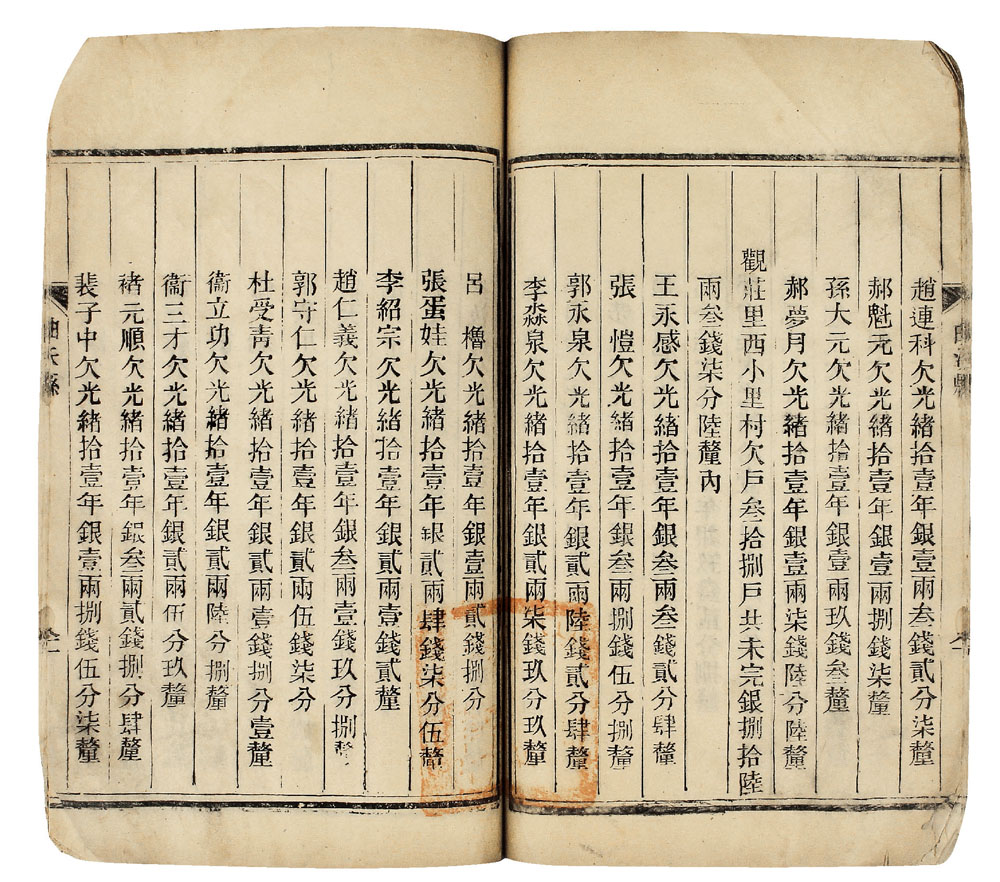 趙連科欠光緒拾壹年銀壹兩叁錢貳分柒釐
郝魁元欠光緒拾壹年銀壹兩捌錢柒釐
孫大元欠光緒拾壹年銀壹兩玖錢叁釐
郝夢月欠光緒拾壹年銀壹兩柒錢陸分陸釐
觀莊里西小里村欠戶叁拾捌戶共未完銀捌拾陸
兩叁錢柒分陸釐內
王永感欠光緒拾壹年銀叁兩叁錢貳分肆釐
張愷欠光緒拾壹年銀叁兩捌錢伍分捌釐
郭永泉欠光緒拾壹年銀貳兩陸錢貳分肆釐
李淼泉欠光緒拾壹年銀貳兩柒錢玖分玖釐
呂櫓欠光緒拾壹年銀壹兩貳錢捌分
張蛋娃欠光緒拾壹年銀貳兩肆錢柒分伍釐
李紹宗欠光緒拾壹年銀貳兩壹錢貳釐
趙仁義欠光緒拾壹年銀叁兩壹錢玖分捌釐
郭守仁欠光緒拾壹年銀貳兩伍錢柒分
杜受青欠光緒拾壹年銀貳兩壹錢捌分壹釐
衞立功欠光緒拾壹年銀貳兩陸分捌釐
衞三才欠光緒拾壹年銀貳兩伍分玖釐
褚元順欠光緒拾壹年銀叁兩貳錢捌分肆釐
裴子中欠光緒拾壹年銀壹兩捌錢伍分柒釐
曲沃縣